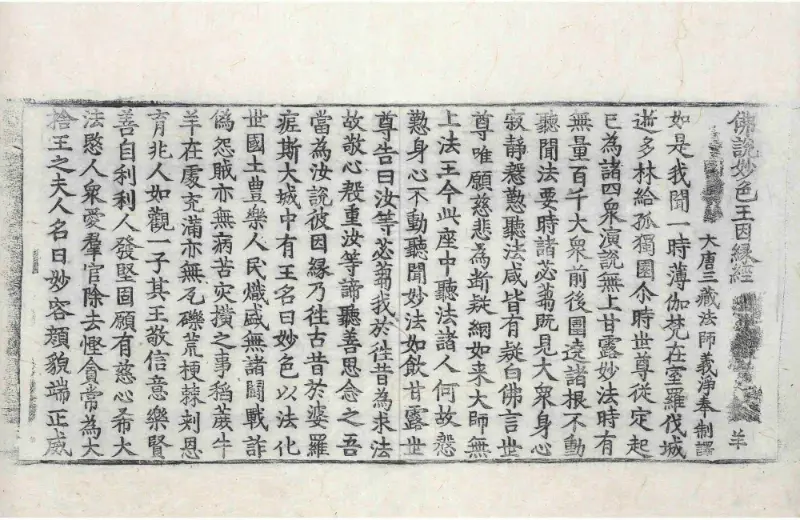 佛說妙色王因縁經 羊
大唐三藏法師義淨奉 制譯
如是我聞一時薄伽梵在室羅伐城
逝多林給孤獨園尒時世尊從定起
已為諸四衆演說無上甘露妙法時有
無量百千大衆前後圍遶諸根不動
聽聞法要時諸苾蒭既見大衆身心
寂静慇懃聽法咸皆有疑白佛言世
尊唯願慈悲為斷疑網如来大師無
上法王今此座中聽法諸人何故慇
懃身心不動聽聞妙法如飲甘露世
尊告曰汝等苾蒭我於往昔為求法
故敬心殷重汝等諦聽善思念之吾
當為汝說彼因縁乃往古昔於婆羅
痆斯大城中有王名曰妙色以法化
世國土豊樂人民熾盛無諸鬪戰詐
偽怨賊亦無病苦灾撗之事稻蔗牛
羊在處充滿亦無瓦礫荒梗棘刺恩
育兆人如觀一子其王敬信意樂賢
善自利利人發堅固願有慈心希大
法愍人衆愛羣官除去慳貪常為大
捨王之夫人名曰妙容顔貌端正威